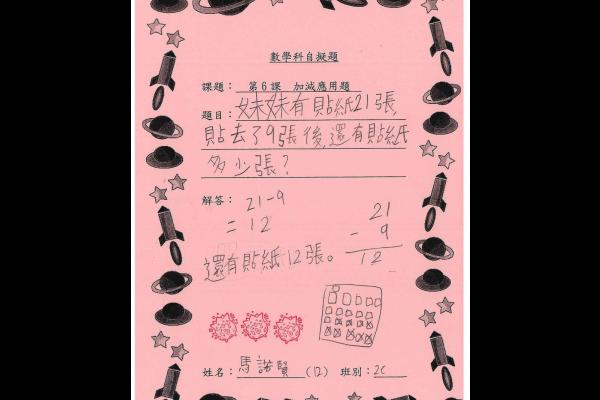 數學科自擬題
課題： 第6課 加減應用題
題目：妹妹有貼紙21張,
貼去了9張後,還有貼紙
多少張?
解答： 21-9
= 12
21
- 9
12
還有貼紙12張。
姓名：馬諾賢 (12) 班別：2C